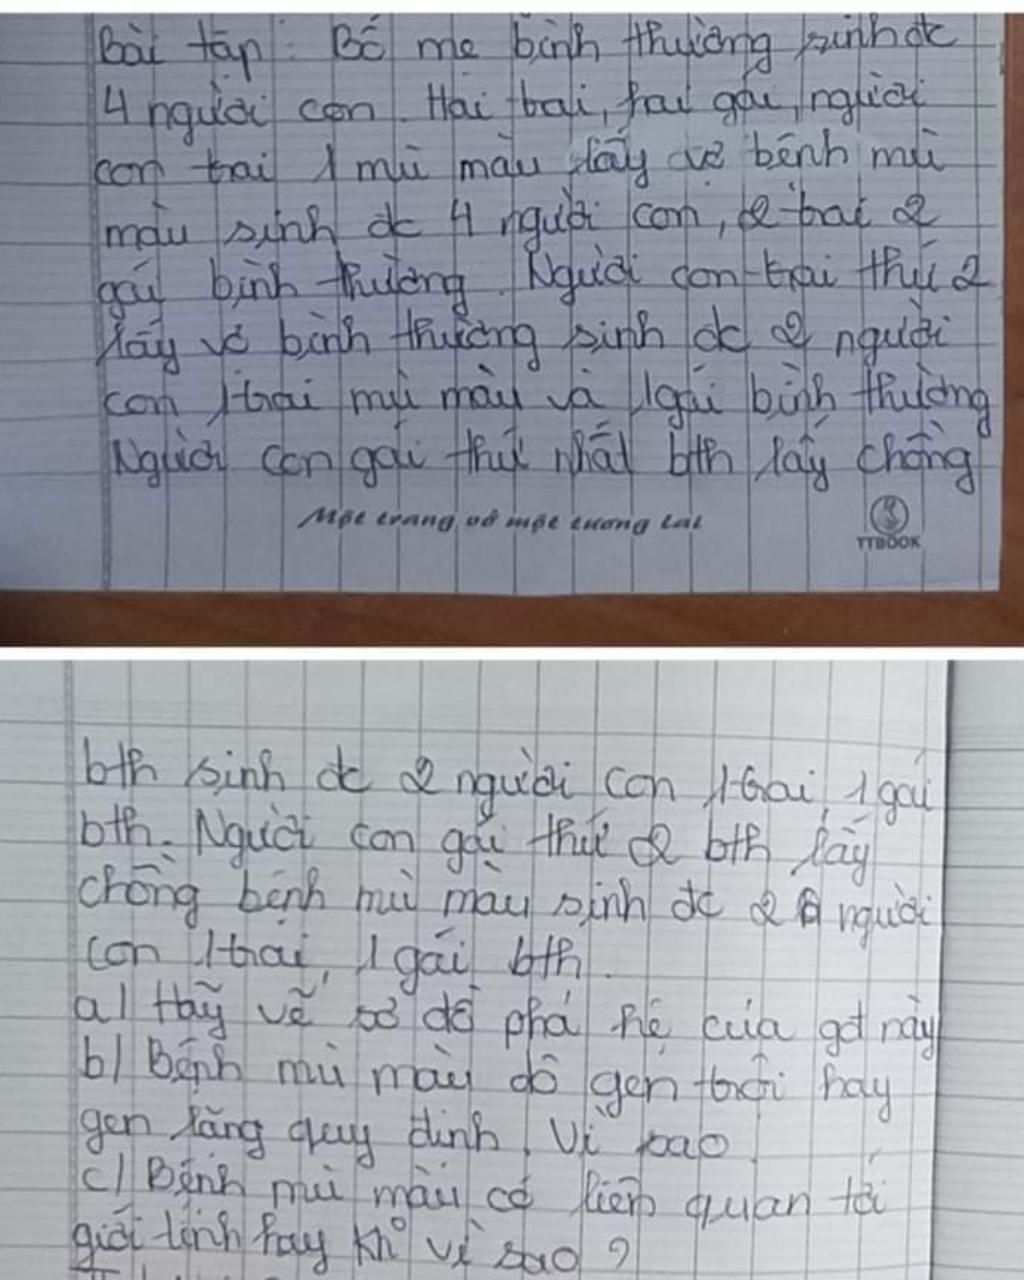 Bài tập: Bố mẹ bình thường sinh đc
4 người con. Hai trai, hai gái, người
con trai 1 mù màu lấy vợ bệnh mù
màu sinh đc 4 người con, 2 trai 2
gái bình thường. Người con trai thứ 2
lấy vợ bình thường sinh đc 2 người
con 1 trai mù màu và 1 gái bình thường
Người con gái thứ nhất bth lấy chồng
Một trang vở một tương lai
TTBOOK
bth sinh đc 2 người con 1 trai, 1 gái
bth. Người con gái thứ 2 bth lấy
chồng bệnh mù màu sinh đc 2 người
con 1 trai, 1 gái bth.
a) Hãy vẽ sơ đồ phả hệ của gđ này
b) Bệnh mù màu dô gen trội hay
gen lặng quy định. Vì sao
c) Bệnh mù màu có liên quan tới
giới tính hay kh° vì sao?